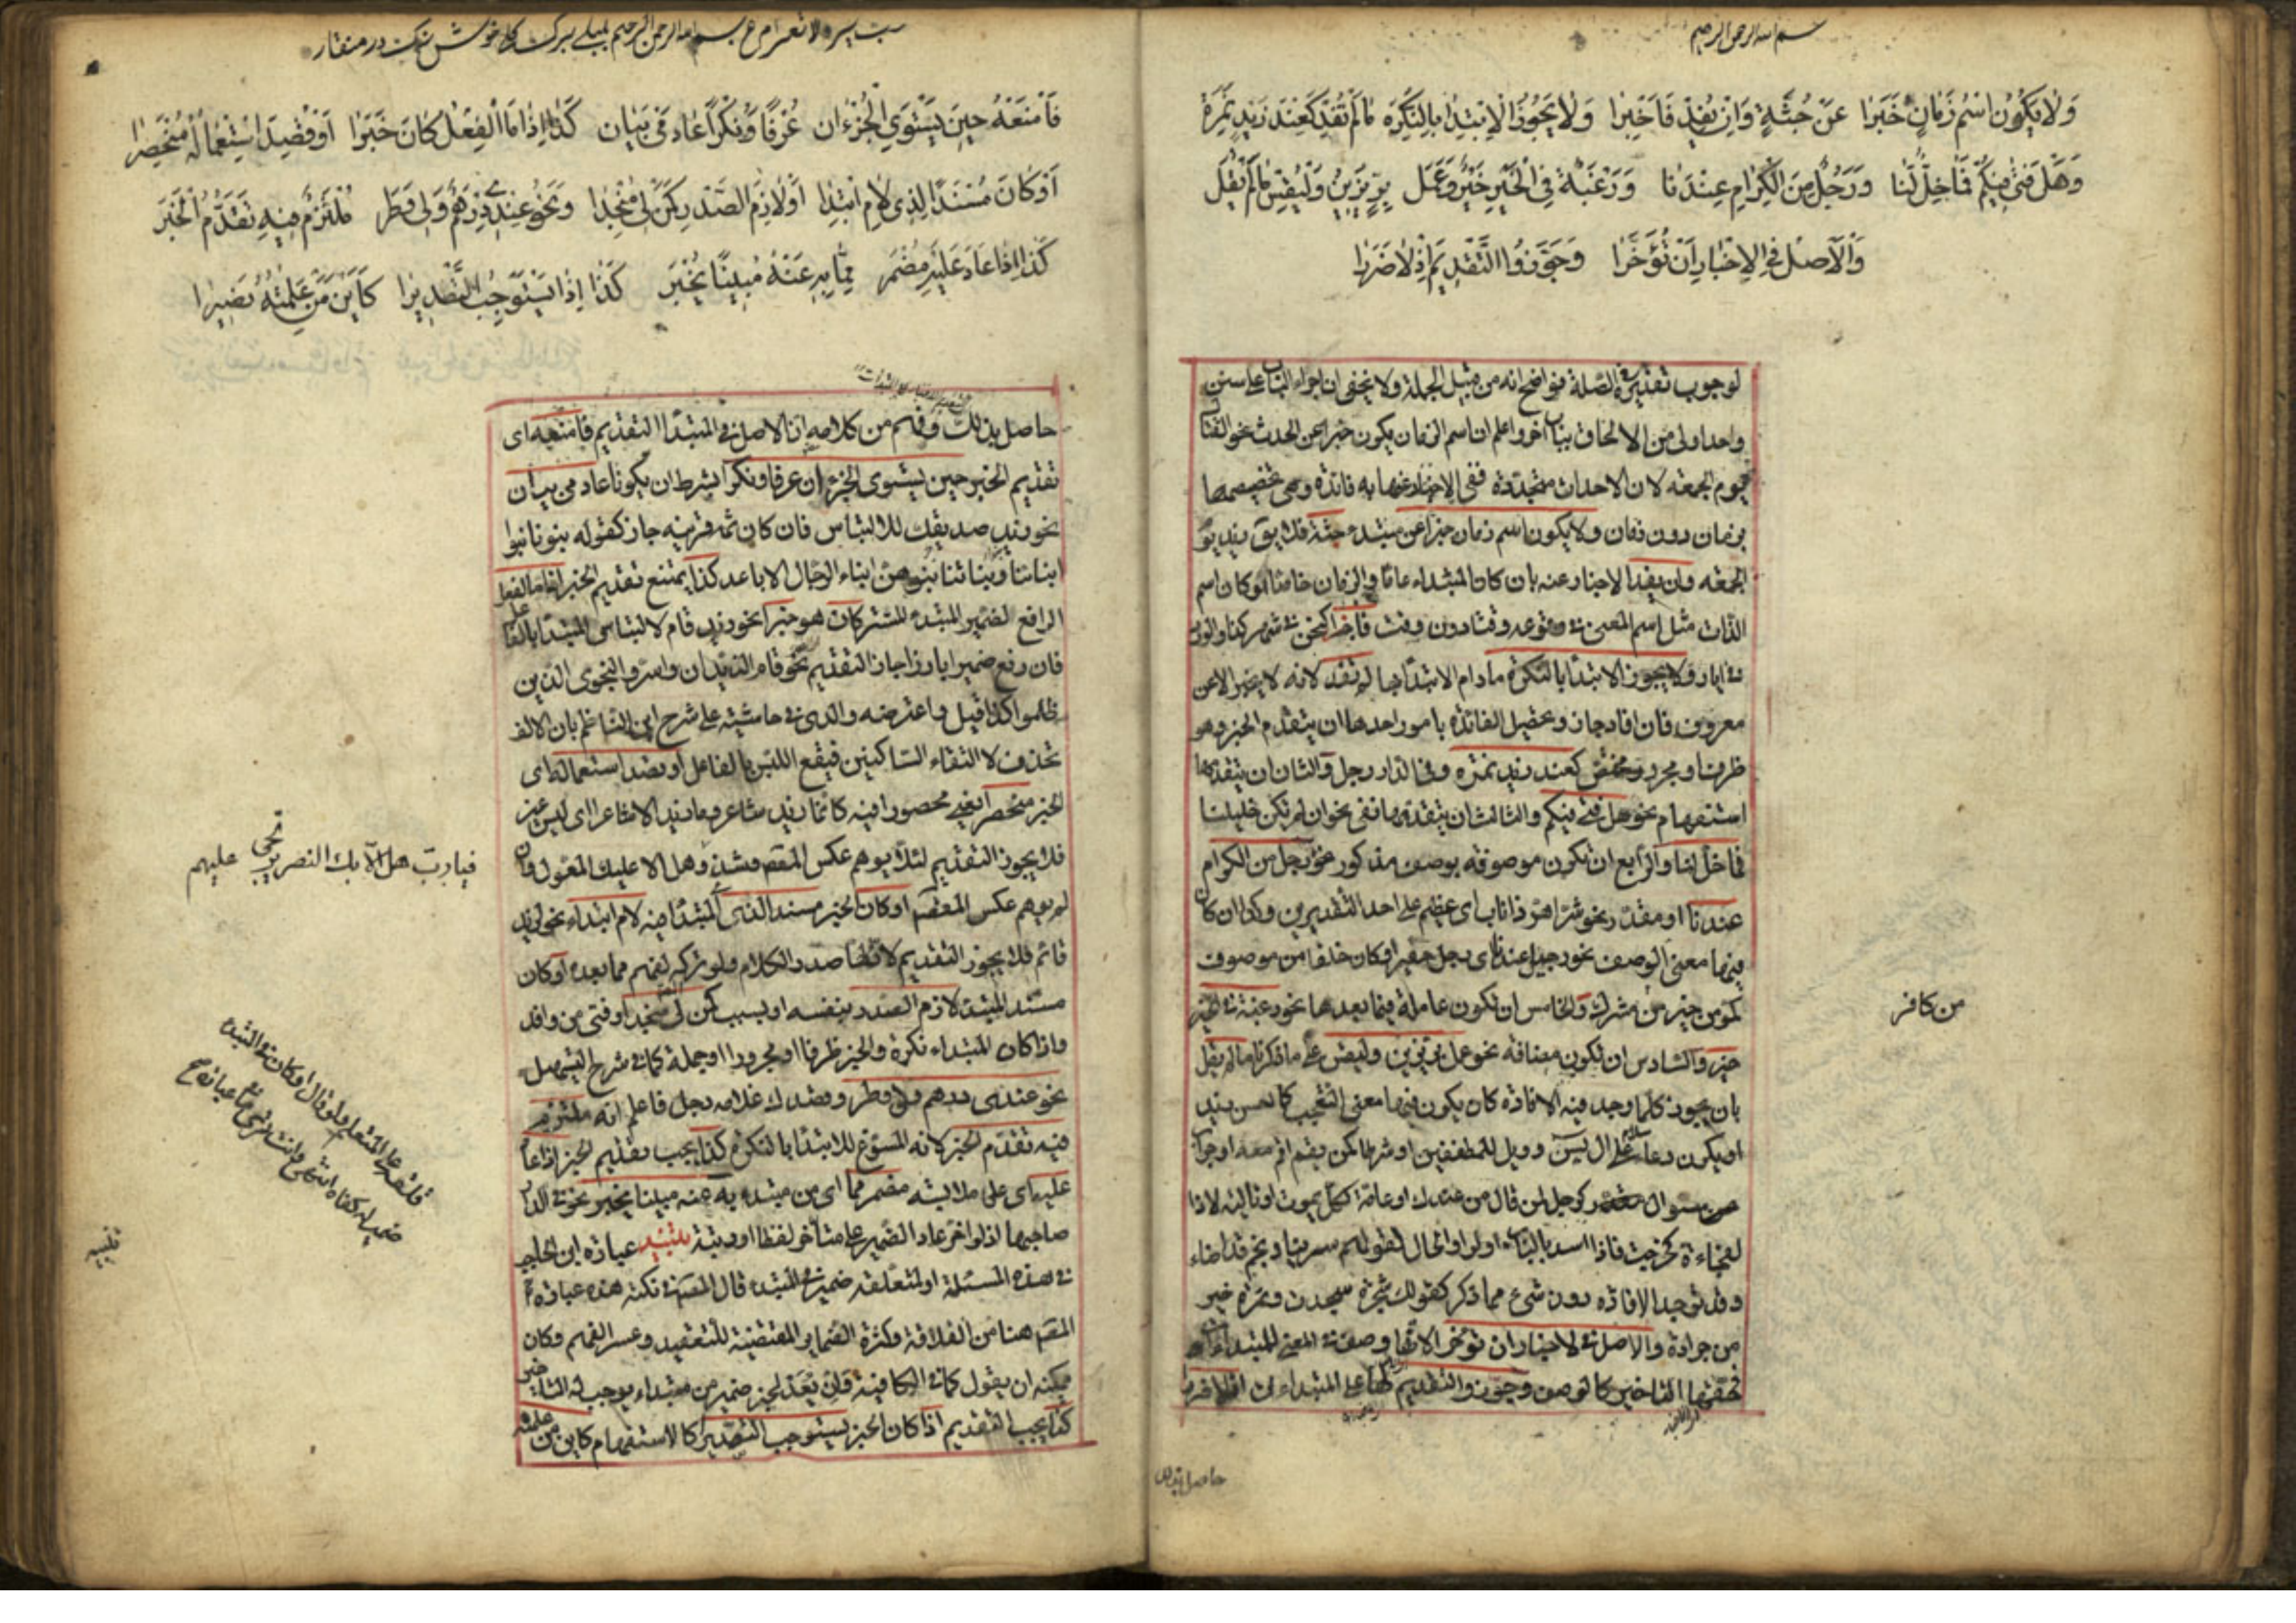 بسم الله الرحمن الرحيم
وَلا يَكُونُ اسْمُ زَمَانٍ خَبَرا عَنْ جُثَّةٍ وَاِنْ يُفِدْ فَاَخْبِرا وَلا يَجُوزُ الْاِبْتِدَا بِالنَّكِرَة مَا لَمْ تُفِدْ كَعِنْدَ زَيْدٍ نَمِرَة
وَهَلْ فَتىً فِيكُمْ فَمَا خِلٌّ لَنَا وَرَجُلٌ مِنَ الْكِرَامِ عِنْدَنَا وَرَغْبَةٌ فِي الْخَيْرِ خَيْرٌ وَعَمَلْ بِرٍّ يَزِينُ وَلْيُقَسْ مَا لَمْ يُقَلْ
وَالْاَصْلُ فِي الْاِخْبَارِ اَنْ تُؤَخَّرا وَجَوَّزُوا التَّقْدِيمَ اِذْ لا ضَرَرا
لوجوب تقديره في الصلة فواضح انه من قبيل الجملة ولا يخفى ان اجراء الباب على سنن
واحد اولى من الالحاق بباب آخر واعلم ان اسم الزمان يكون خبرا عن الحدث نحو القتال
يوم الجمعة لان الاحداث متجددة ففي الاخبار عنها به فائدة وهي تخصيصها
بزمان دون زمان ولا يكون اسم زمان خبرا عن مبتدء جثة فلا يق زيد يوم
الجمعه وان يفد الاخبار عنه بان كان المبتداء عاما والزمان خاصا او كان اسم
الذات مثل اسم المعنى في وقوعه وقتا دون وقت فاخبرا كنحن في شهر كذا والورد
في ايار ولا يجوز الابتدا بالنكرة مادام الابتدا بها لم تفد لانه لا يخبر الا عن
معروف فان افاد جاز وتحصيل الفائدة بامور احدها ان يتقدم الخبر وهو
ظرف او مجرور مختص كعند زيد نمرة وفي الدار رجل والثاني ان يتقدمها
استفهام نحو هل فتى فيكم والثالث ان يتقدمها نفي نحو ان لم تكن خليلنا
فما خل لنا والرابع ان تكون موصوفه بوصف مذكور نحو رجل من الكرام
عندنا او مقدر نحو شر اهر ذا ناب اي عظيم على احد التقديرين وكذا ان كان
فيها معنى الوصف نحو رجيل عندنا اي رجل حقير او كان خلفا من موصوف
كمؤمن خير من مشرك والخامس ان تكون عاملة فيما بعدها نحو رغبة في الخير
خير والسادس ان تكون مضافة نحو عمل بر يزين وليقس على ما ذكرنا ما لم يقل
بان يجوز كلما وجد فيه الافادة كان يكون فيها معنى التعجب كما احسن زيد
او يكون دعاء نحو سلام على ال يس وويل للمطففين او شرطا كمن يقم اقم معه او جواب
سؤال كرجل لمن قال من عندك او عامة ككل يموت او تالية لاذا
لفجاءة كخرجت فاذا اسد بالباب او لواو الحال كقوله سرينا ونجم قد اضاء
وقد توجد الافادة دون شئ مما ذكر كقولك شجرة سجدت وتمرة خير
من جرادة والاصل في الاخبار ان تؤخر لانها وصف في المعنى للمبتداء
فحقها التاخير كالوصف وجوزوا التقديم لها على المبتداء اذ لا ضررا
من كافر
حاصل بذلك
فَامْنَعْهُ حِينَ يَسْتَوِي الْجُزْءَان عُرْفًا وَنُكْرًا عَادِمَيْ بَيَان كَذَا اِذَا مَا الْفِعْلُ كَانَ خَبَرا اَوْ قُصِدَ اسْتِعْمَالُهُ مُنْحَصِرا
اَوْ كَانَ مُسْنَدًا لِذِي لامِ ابْتِدا اَوْ لازِمِ الصَّدْرِ كَمَنْ لِي مُنْجِدا وَنَحْوُ عِنْدِي دِرْهَمٌ وَلِي وَطَر مُلْتَزَمٌ فِيهِ تَقَدُّمُ الْخَبَر
كَذَا اِذَا عَادَ عَلَيْهِ مُضْمَر مِمَّا بِهِ عَنْهُ مُبِينًا يُخْبَر كَذَا اِذَا يَسْتَوْجِبُ التَّصْدِيرا كَاَيْنَ مَنْ عَلِمْتَهُ نَصِيرا
حاصل بذلك وفهم من كلامه ان الاصل في المبتدا التقديم فامنعه اي
تقديم الخبر حين يستوى الجزءان عرفا ونكرا بشرط ان يكونا عادمي بيان
نحو زيد صديقك للالتباس فان كان ثمه قرينه جاز كقوله بنونا بنوا
ابنائنا وبناتنا بنوهن ابناء الرجال الاباعد كذا يمتنع تقديم الخبر اذا ما الفعل
الرافع لضمير المبتدء المستتر كان هو خبرا نحو زيد قام لالتباس المبتدا بالفاعل
فان رفع ضميرا بارزا جاز التقديم نحو قاما الزيدان واسروا النجوى الذين
ظلموا كذا قيل واعترضه والدي في حاشيته على شرح ابن الناظم بان الالف
تحذف لالتقاء الساكنين فيقع اللبس بالفاعل او قصد استعماله اي
الخبر منحصرا يعني محصورا فيه كانما زيد شاعر وما زيد الا شاعر اي ليس غير
فلا يجوز التقديم لئلا يوهم عكس المقصود وشذ وهل الا عليك المعول فان
لم يوهم عكس المقصود او كان الخبر مسندا الذي المبتدا فيه لام ابتداء نحو لزيد
قائم فلا يجوز التقديم لان لها صدر الكلام ولو تركه لفهم مما بعده او كان
مسند المبتدء لازم الصدر بنفسه او بسبب كمن لي منجدا وفتى من وافد
واذا كان المبتداء نكرة والخبر ظرفا او مجرورا او جملة كما في شرح التسهيل
نحو عندي درهم ولي وطر وقصدك غلامه رجل فاعلم انه ملتزم
فيه تقدم الخبر لانه المسوغ للابتدا بالنكرة كذا يجب تقديم الخبر اذا عاد
عليه اي على ملابسه مضمر مما اي من مبتدء به عنه مبينا يخبر نحو في الدار
صاحبها اذ لو اخر عاد الضمير على متاخر لفظا ورتبة تنبيه عبارة ابن الحاجب
في هذه المسئلة او لمتعلقه ضمير في المبتدء قال المصنف في نكته هذه عبارة
المصنف هنا من القلاقة وكثرة الضماير المقتضية للتعقيد وعسر الفهم وكان
يمكنه ان يقول كما في الكافية وان يعد لخبر ضمير من مبتداء يوجب له التاخير
كذا يجب التقديم اذا كان الخبر يستوجب التصديرا كالاستفهام كاين من علمته
فيارب هل الا بك النصر يرتجى عليهم